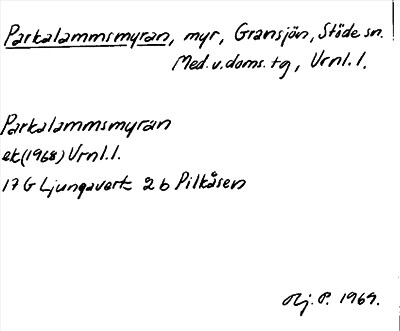 Parkalammsmyran, myr, Gransjön, Stöde sn.
Med. v. doms. tg, Vrnl. l.
Parkalammsmyran
ek (1968) Vrnl. l.
17 G Ljungaverk 2 b Pilkåsen
P. 1969.